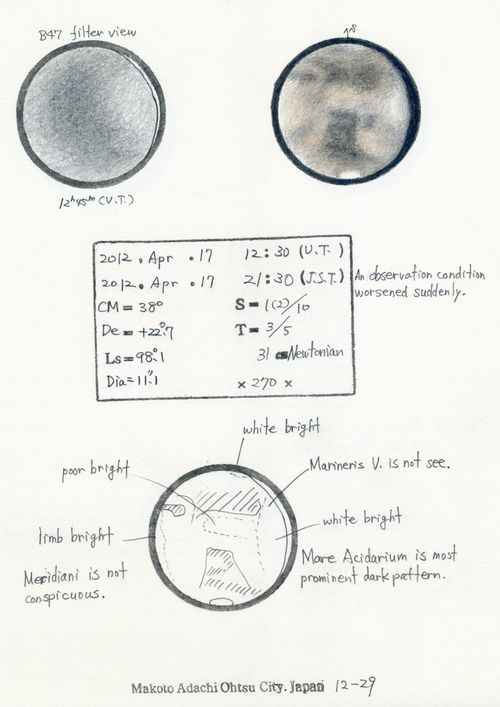 B47 filter view
S
12h45m (U.T.)
2012. Apr. 17 12:30 (U.T.)
2012. Apr. 17 21:30 (J.S.T.)
CM = 38° S = 1(2)/10
De = +22.°7 T = 3/5
Ls = 98.°1 31 cm Newtonian
Dia = 11."1 × 270 ×
An observation condition
worsened suddenly.
white bright
poor bright
Marineris V. is not see.
limb bright
white bright
Meridiani is not
conspicuous.
Mare Acidarium is most
prominent dark pattern.
Makoto Adachi Ohtsu City. Japan 12-29